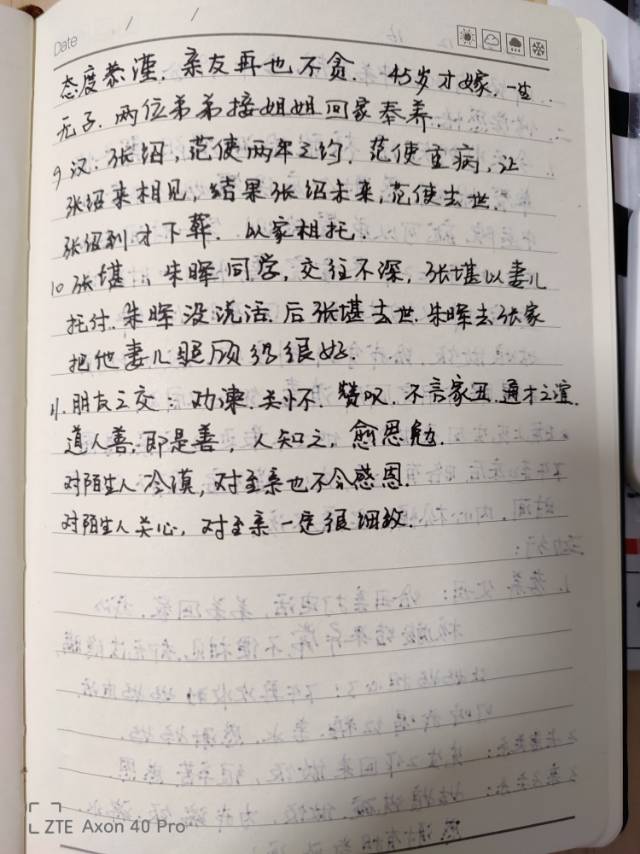 Date / /
态度恭谨.亲友再也不贪. 45岁才嫁.一生.
无子.两位弟弟接姐姐回家奉养.
9汉.张绍,范使两年之约.范使重病,让
张绍来相见,结果张绍未来,范使去世.
张绍到才下葬. 以家相托.
10张堪:朱晖同学,交往不深,张堪以妻儿
托付.朱晖没说话.后张堪去世.朱晖去张家
把他妻儿照顾得很好.
11.朋友之交:劝谏.关怀.赞叹.不言家丑.通才之谊.
道人善,即是善,人知之,愈思勉.
对陌生人冷漠,对至亲也不会感恩.
对陌生人关心,对至亲一定很细致.
ZTE Axon 40 Pro